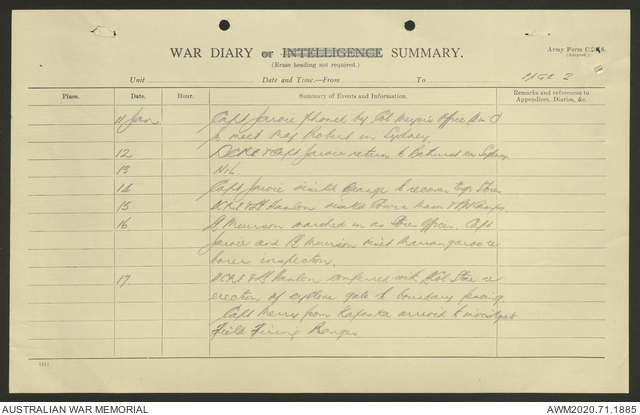 WAR DIARY or INTELLIGENCE SUMMARY.
Army Form C.2118.
(Adapted.)
(Erase heading not required.)
Unit Date and Time.—From To
PAGE 2
Place. Date. Hour. Summary of Events and Information. Remarks and references to Appendices, Diaries, &c.
11 Jan Capt Jarvie phoned by Col Meyers Office
to meet Maj Robert in Sydney
12 DCRE & Capt Jarvie return to Bathurst Sydney
13 Nil.
14 Capt Jarvie visited Orange to recover Stores
15 DCRE & Lt Hanlon visited Cowra &
16 Lt marched in as Stores Officer. Capt
Jarvie and Lt visit Marrangaroo re
borer inspection.
17. DCRE & Lt Hanlon conferred with re
erection of cyclone gate & boundary fencing
Capt Merry from Kapooka arrived to investigate
Field Firing Ranges
AUSTRALIAN WAR MEMORIAL
AWM2020.71.1885